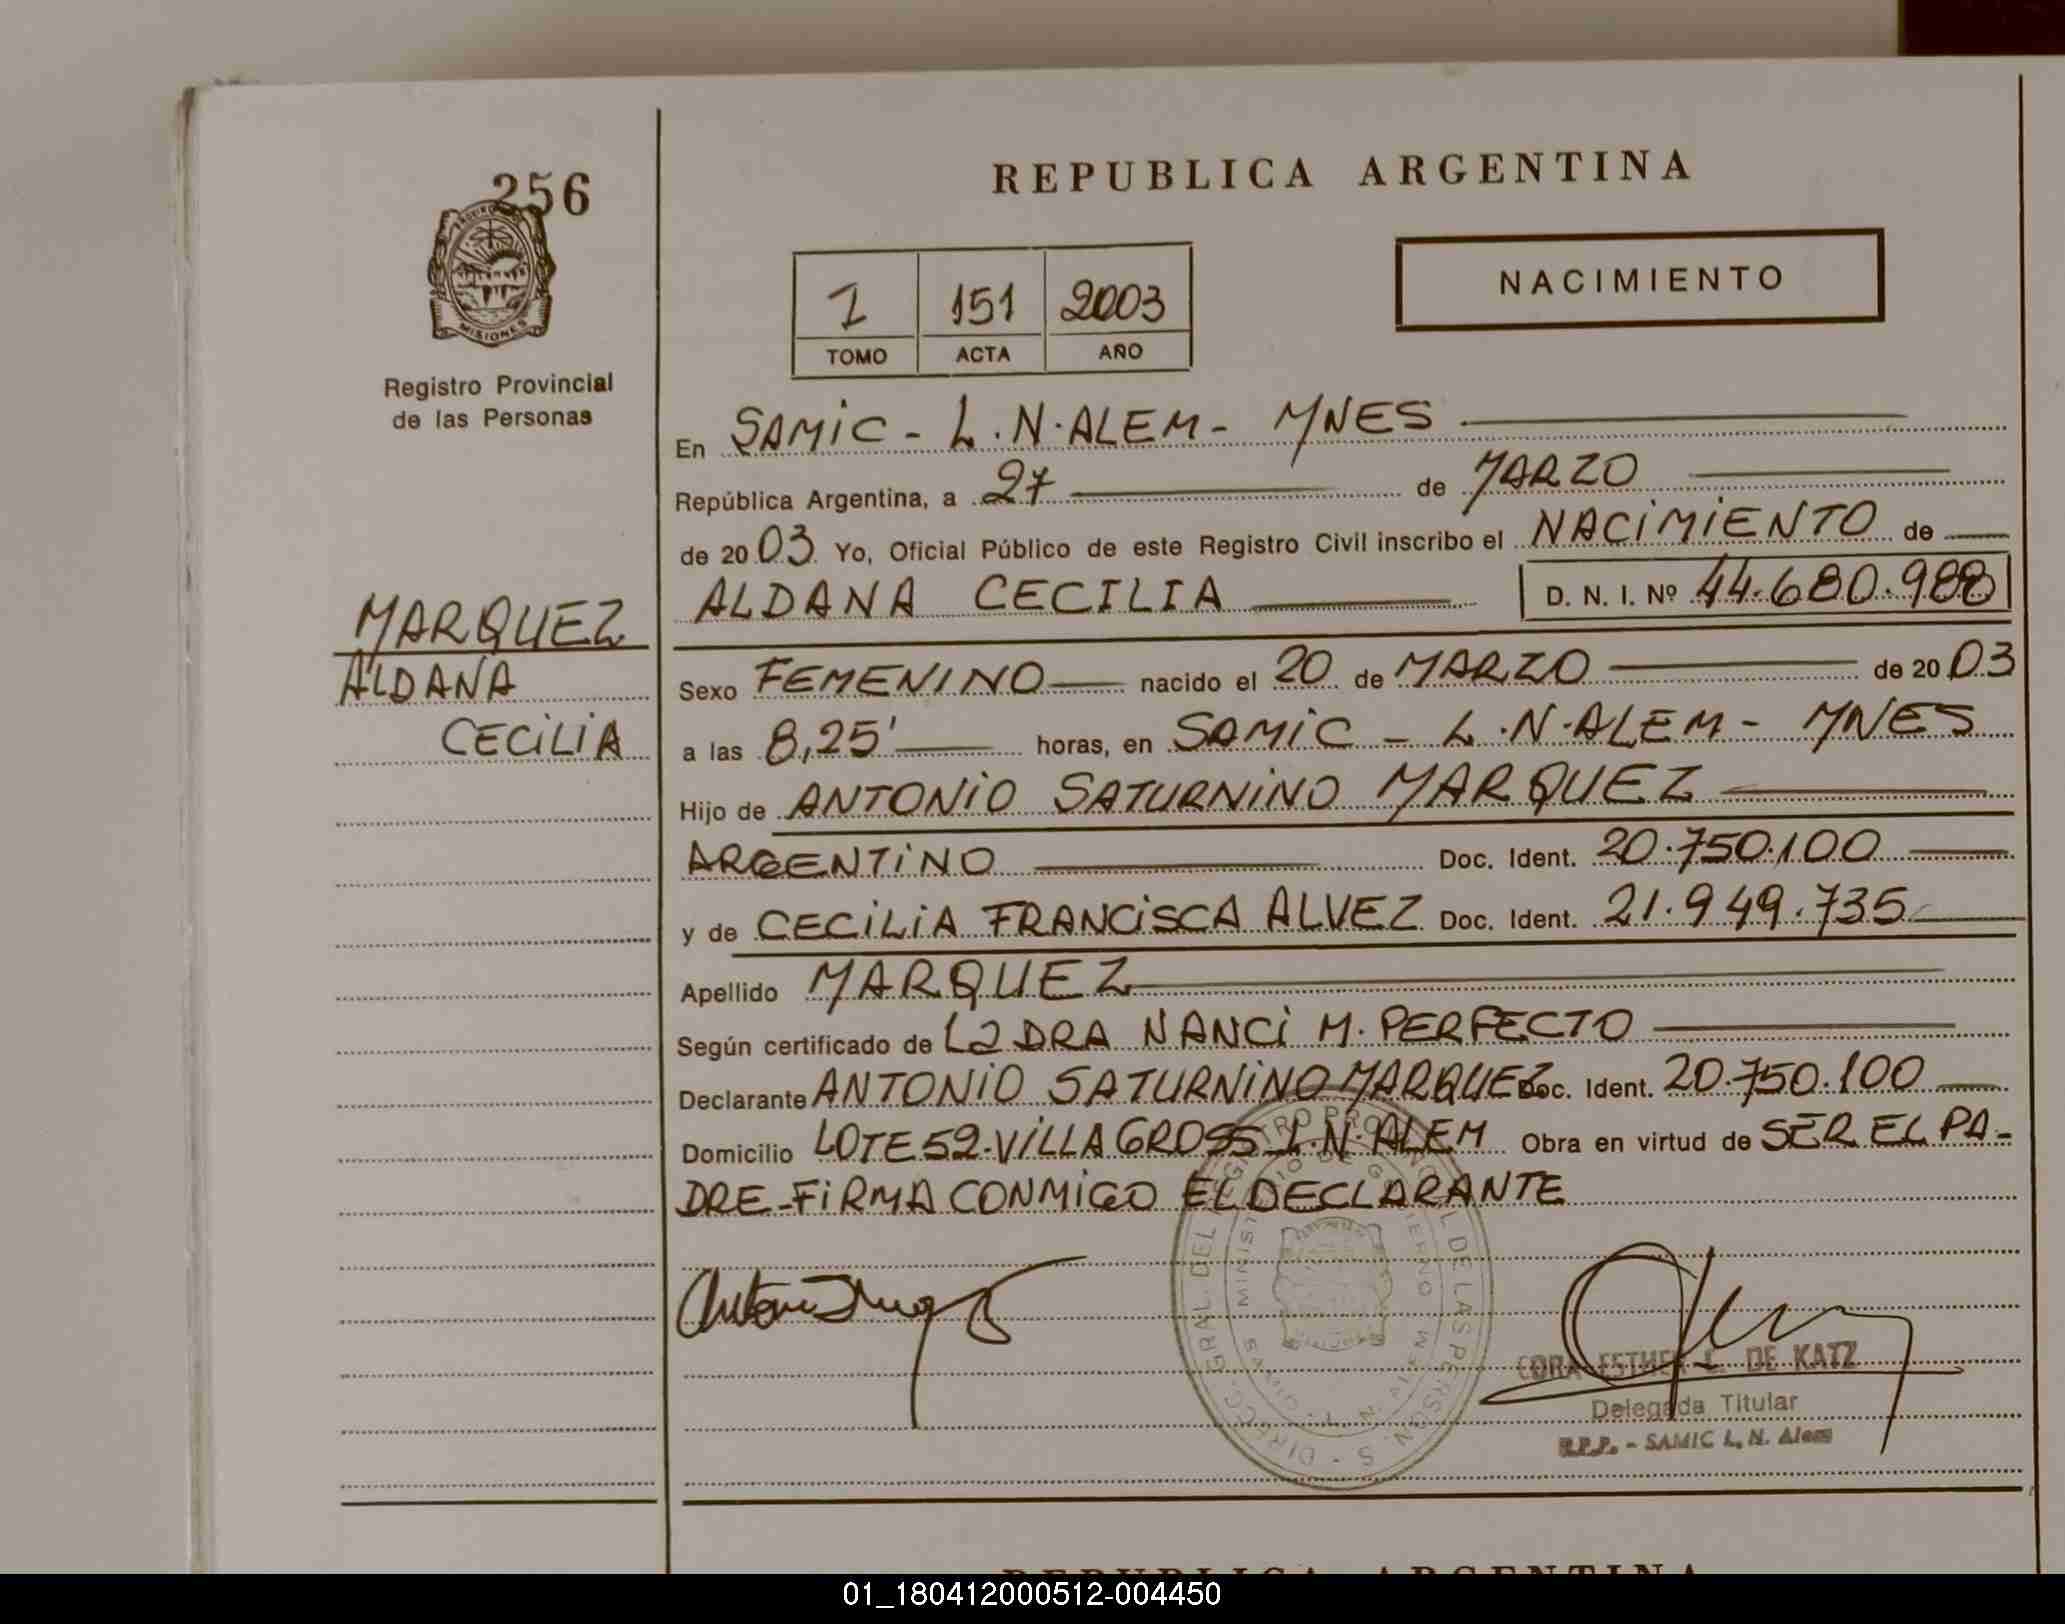 256
MISIONES
Registro Provincial
de las Personas
MARQUEZ
ALDANA
CECILIA
REPUBLICA ARGENTINA
1 151 2003
TOMO ACTA AÑO
NACIMIENTO
En SAMIC - L.N. ALEM - MNES
República Argentina, a 27 de MARZO
de 2003 Yo, Oficial Público de este Registro Civil inscribo el NACIMIENTO de
ALDANA CECILIA D. N. I. Nº 44.680.988
Sexo FEMENINO nacido el 20 de MARZO de 2003
a las 8,25' horas, en SAMIC - L.N. ALEM - MNES
Hijo de ANTONIO SATURNINO MARQUEZ
ARGENTINO Doc. Ident. 20.750.100
y de CECILIA FRANCISCA ALVEZ Doc. Ident. 21.949.735
Apellido MARQUEZ
Según certificado de La DRA NANCI M. PERFECTO
Declarante ANTONIO SATURNINO MARQUEZ Doc. Ident. 20.750.100
Domicilio LOTE 52-VILLA GROSS L.N. ALEM Obra en virtud de SER EL PA-
DRE-FIRMA CONMIGO EL DECLARANTE
CORA ESTHER L. DE KATZ
Delegada Titular
R.P.P. - SAMIC L. N. Alem
REPUBLICA ARGENTINA
01_180412000512-004450